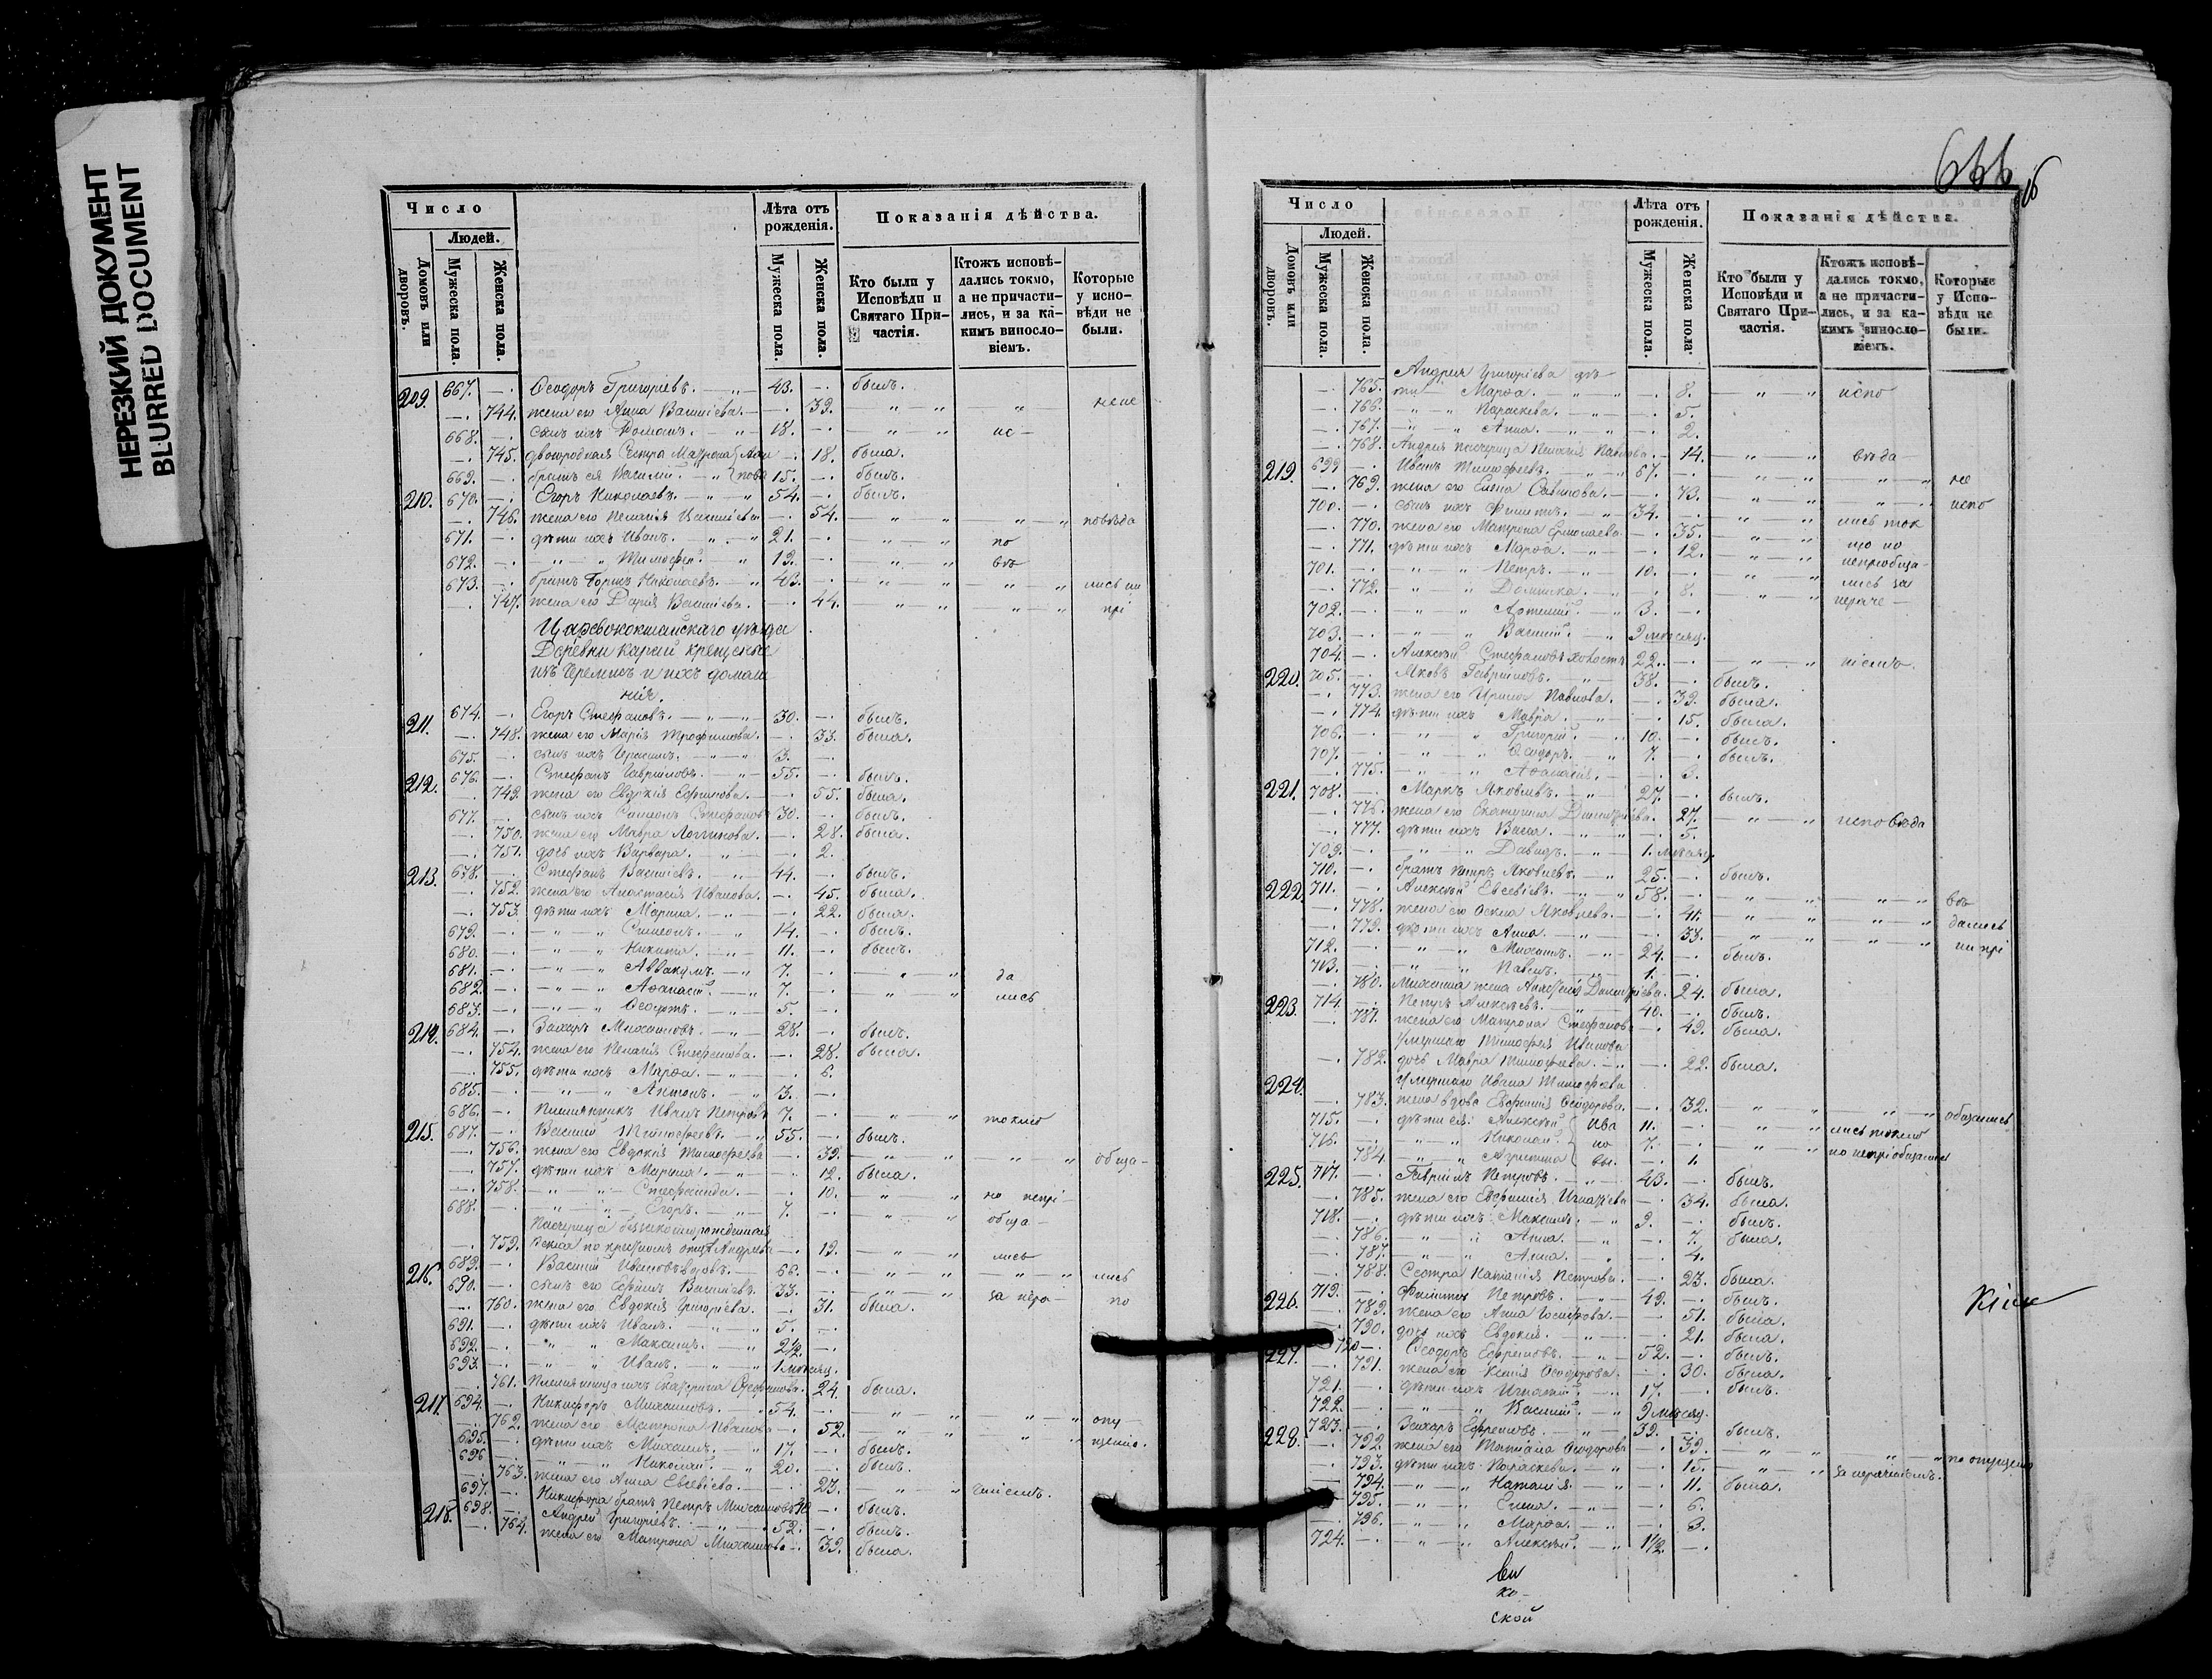 НЕРЕЗКИЙ ДОКУМЕНТ
BLURRED DOCUMENT
Число
Людей.
Домовъ или дворовъ.
Мужеска пола.
Женска пола.
Лѣта отъ рожденія.
Мужеска пола.
Женска пола.
Показанія дѣйства.
Кто были у Исповѣди и Святаго Причастія.
Ктожъ исповѣдались токмо, а не причастились, и за какимъ винословіемъ.
Которые у исповѣди не были.
209. 667. —. Ѳеодоръ Григоріевъ. 43. —. былъ.
—. 744. жена его Анна Василіева. —. 39. " "
668. —. сынъ ихъ Романъ. 18. —. " " ис-
—. 745. двоюродная сестра Матрона —. 18. была.
669. —. братъ ея Василій. 15. —. былъ.
210. 670. —. Егоръ Николаевъ. 54. —. былъ.
—. 746. жена его Пелагія Василіева —. 54. " " " " повѣда
671. —. дѣти ихъ Иванъ. 21. —. " " по
672. —. " " Тимофей. 12. —. " " вѣ
673. —. братъ Борисъ Николаевъ. 43. —. " " " "
—. 747. жена его Дарія Василіева. —. 44. " " " " прі
Царевококшайскаго уѣзда
Деревни Карай крещеные
изъ Черемисъ и ихъ домаш
нія.
211. 674. —. Егоръ Стефановъ. 30. —. былъ.
—. 748. жена его Марія Трофимова. —. 33. была.
675. —. сынъ ихъ Герасимъ. 3. —.
212. 676. —. Стефанъ Гавриловъ. 55. —. былъ.
—. 749. жена его Евдокія Ефимова. —. 55. была.
677. —. сынъ ихъ Симеонъ Стефановъ 30. —. былъ.
—. 750. жена его Мавра Логинова. —. 28. была.
—. 751. дочь ихъ Варвара. —. 2.
213. 678. —. Стефанъ Василіевъ. 44. —. былъ.
—. 752. жена его Анастасія Иванова. —. 45. была.
—. 753. дѣти ихъ Марина. —. 22. была.
679. —. " " Симеонъ. 14. —. былъ.
680. —. " " Никита. 11. —. былъ.
681. —. " " Аввакумъ. 7. —. " " да
682. —. " " Аѳанасій. 7. —. " " лись
683. —. " " Ѳеодотъ. 5. —.
214. 684. —. Захаръ Михаиловъ. 28. —. былъ.
—. 754. жена его Пелагія Стефанова. —. 28. была.
—. 755. дѣти ихъ Марѳа. —. 6.
685. —. " " Антонъ. 3. —.
686. —. Племянникъ Иванъ Петровъ 7. —. " " токмо
215. 687. —. Василій Тимофеевъ. 55. —. былъ.
—. 756. жена его Евдокія Тимофеева —. 39. " " " " обща-
—. 757. дѣти ихъ Марина. —. 12. была.
—. 758. " " Стефанида. —. 10. " " но непрі
688. —. " " Егоръ. 7. —. " " обща-
Пасчерица беззаконнорожденная
—. 759. Ѳекла по крестномъ отцѣ Андреева —. 19. " " лись
216. 689. —. Василій Ивановъ вдовъ. 66. —. " " " " лись
690. —. сынъ его Ефимъ Василіевъ. 33. —. " " за нера- по
—. 760. жена его Евдокія Григоріева. —. 31. была.
691. —. дѣти ихъ Иванъ. 5. —.
692. —. " " Максимъ. 2½. —.
693. —. " " Иванъ. 1 мѣсяц.
—. 761. Племянница ихъ Екатерина —. 24. была.
217. 694. —. Никифоръ Михаиловъ. 54. —. " " " " опу-
—. 762. жена его Матрона Иванова —. 52. " " " " щенію.
695. —. дѣти ихъ Михаилъ. 17. —. былъ.
696. —. " " Николай. 20. —. былъ.
—. 763. жена его Анна Евсевіева. —. 23. " "
697. —. Никифора братъ Петръ Михаиловъ —. былъ.
218. 698. —. Андрей Григоріевъ. 52. —. былъ.
—. 764. жена его Матрона Михаилова —. 39. была.
Число
Людей.
Домовъ или дворовъ.
Мужеска пола.
Женска пола.
Лѣта отъ рожденія.
Мужеска пола.
Женска пола.
Показанія дѣйства.
Кто были у Исповѣди и Святаго Причастія.
Ктожъ исповѣдались токмо, а не причастились, и за какимъ винословіемъ.
Которые у Исповѣди не были.
Андрея Григоріева дѣ-
—. 765. ти Марѳа. —. 8. " " испо
—. 766. " " Параскева. —. 5.
—. 767. " " Анна. —. 2.
—. 768. Андрея пасчерица Пелагія Павлова. —. 14. " " вѣда-
219. 699. —. Иванъ Тимофеевъ. 67. —. " " " " не
—. 769. жена его Елена Савинова. —. 73. " " " " испо
700. —. сынъ ихъ Филиппъ. 34. —. " " лись ток
—. 770. жена его Матрона Ермолаева. —. 35. " " мо но
—. 771. дѣти ихъ Марѳа. —. 12. " " непріобща-
701. —. " " Петръ. 10. —. " " лись за
—. 772. " " Домника. —. 8. " " нераче-
702. —. " " Артемій. 3. —.
703. —. " " Василій. 9 мѣсяц.
704. —. Алексѣй Стефановъ холостъ 22. —. " " ніемъ.
220. 705. —. Яковъ Гавриловъ. 38. —. былъ.
—. 773. жена его Ирина Павлова. —. 39. была.
—. 774. дѣти ихъ Мавра. —. 15. была.
706. —. " " Григорій. 10. —. былъ.
707. —. " " Ѳеодоръ. 7. —. былъ.
—. 775. " " Аѳанасія. —. 3.
221. 708. —. Маркъ Яковлевъ. 27. —. былъ.
—. 776. жена его Екатерина Димитріева. —. 27. " " исповѣда
—. 777. дѣти ихъ Васса. —. 5.
709. —. " " Давидъ. 1. мѣсяц.
710. —. братъ Петръ Яковлевъ. 25. —. былъ.
222. 711. —. Алексѣй Евсевіевъ. 58. —. " " " " вѣ
—. 778. жена его Ѳекла Яковлева. —. 41. " " " " дались
—. 779. дѣти ихъ Анна. —. 33. " " " " ни прі
712. —. " " Михаилъ. 24. —. былъ.
713. —. " " Павелъ. 1. —.
—. 780. Михаила жена Анастасія Димитріева. 24. была.
223. 714. —. Петръ Алексѣевъ. 40. —. былъ.
—. 781. жена его Матрона Стефанова —. 49. была.
Умершаго Тимофея Иванова
—. 782. дочь Мавра Тимофеева. —. 22. была.
224. Умершаго Ивана Тимофеева
—. 783. жена вдова Евфимія Ѳеодорова. —. 32. " " " " общались
715. —. дѣти ея: Алексѣй Ива 11. —. " " лись токмо
716. —. " " Николай но 7. —. " " но непріобщались
—. 784. " " Агрипина вы. —. 1.
225. 717. —. Гавриилъ Петровъ. 43. —. былъ.
—. 785. жена его Евфимія Игнатіева —. 34. была.
718. —. дѣти ихъ: Максимъ. 9. —. былъ.
—. 786. " " Анна. —. 7. была.
—. 787. " " Анна. —. 4.
—. 788. Сестра Наталія Петрова. —. 23. была.
226. 719. —. Филиппъ Петровъ. 49. —. былъ.
—. 789. жена его Анна Іосифова. —. 51. была.
—. 790. дочь ихъ Евдокія. —. 21. была.
227. 720. —. Ѳеодоръ Ефремовъ. 52. —. былъ.
—. 791. жена его Ксенія Ѳеодорова. —. 30. была.
721. —. дѣти ихъ Игнатій. 17. —. былъ.
722. —. " " Василій. 9 мѣсяц.
228. 723. —. Захаръ Ефремовъ. 39. —. былъ.
—. 792. жена его Татіана Ѳеодорова —. 39. " " " " по опущенію
—. 793. дѣти ихъ Параскева. —. 15. " " за нераченіемъ.
—. 794. " " Наталія. —. 11. была.
—. 795. " " Елена. —. 6.
—. 796. " " Марѳа. —. 3.
724. —. " " Алексѣй. 1½. —.
ко-
ской